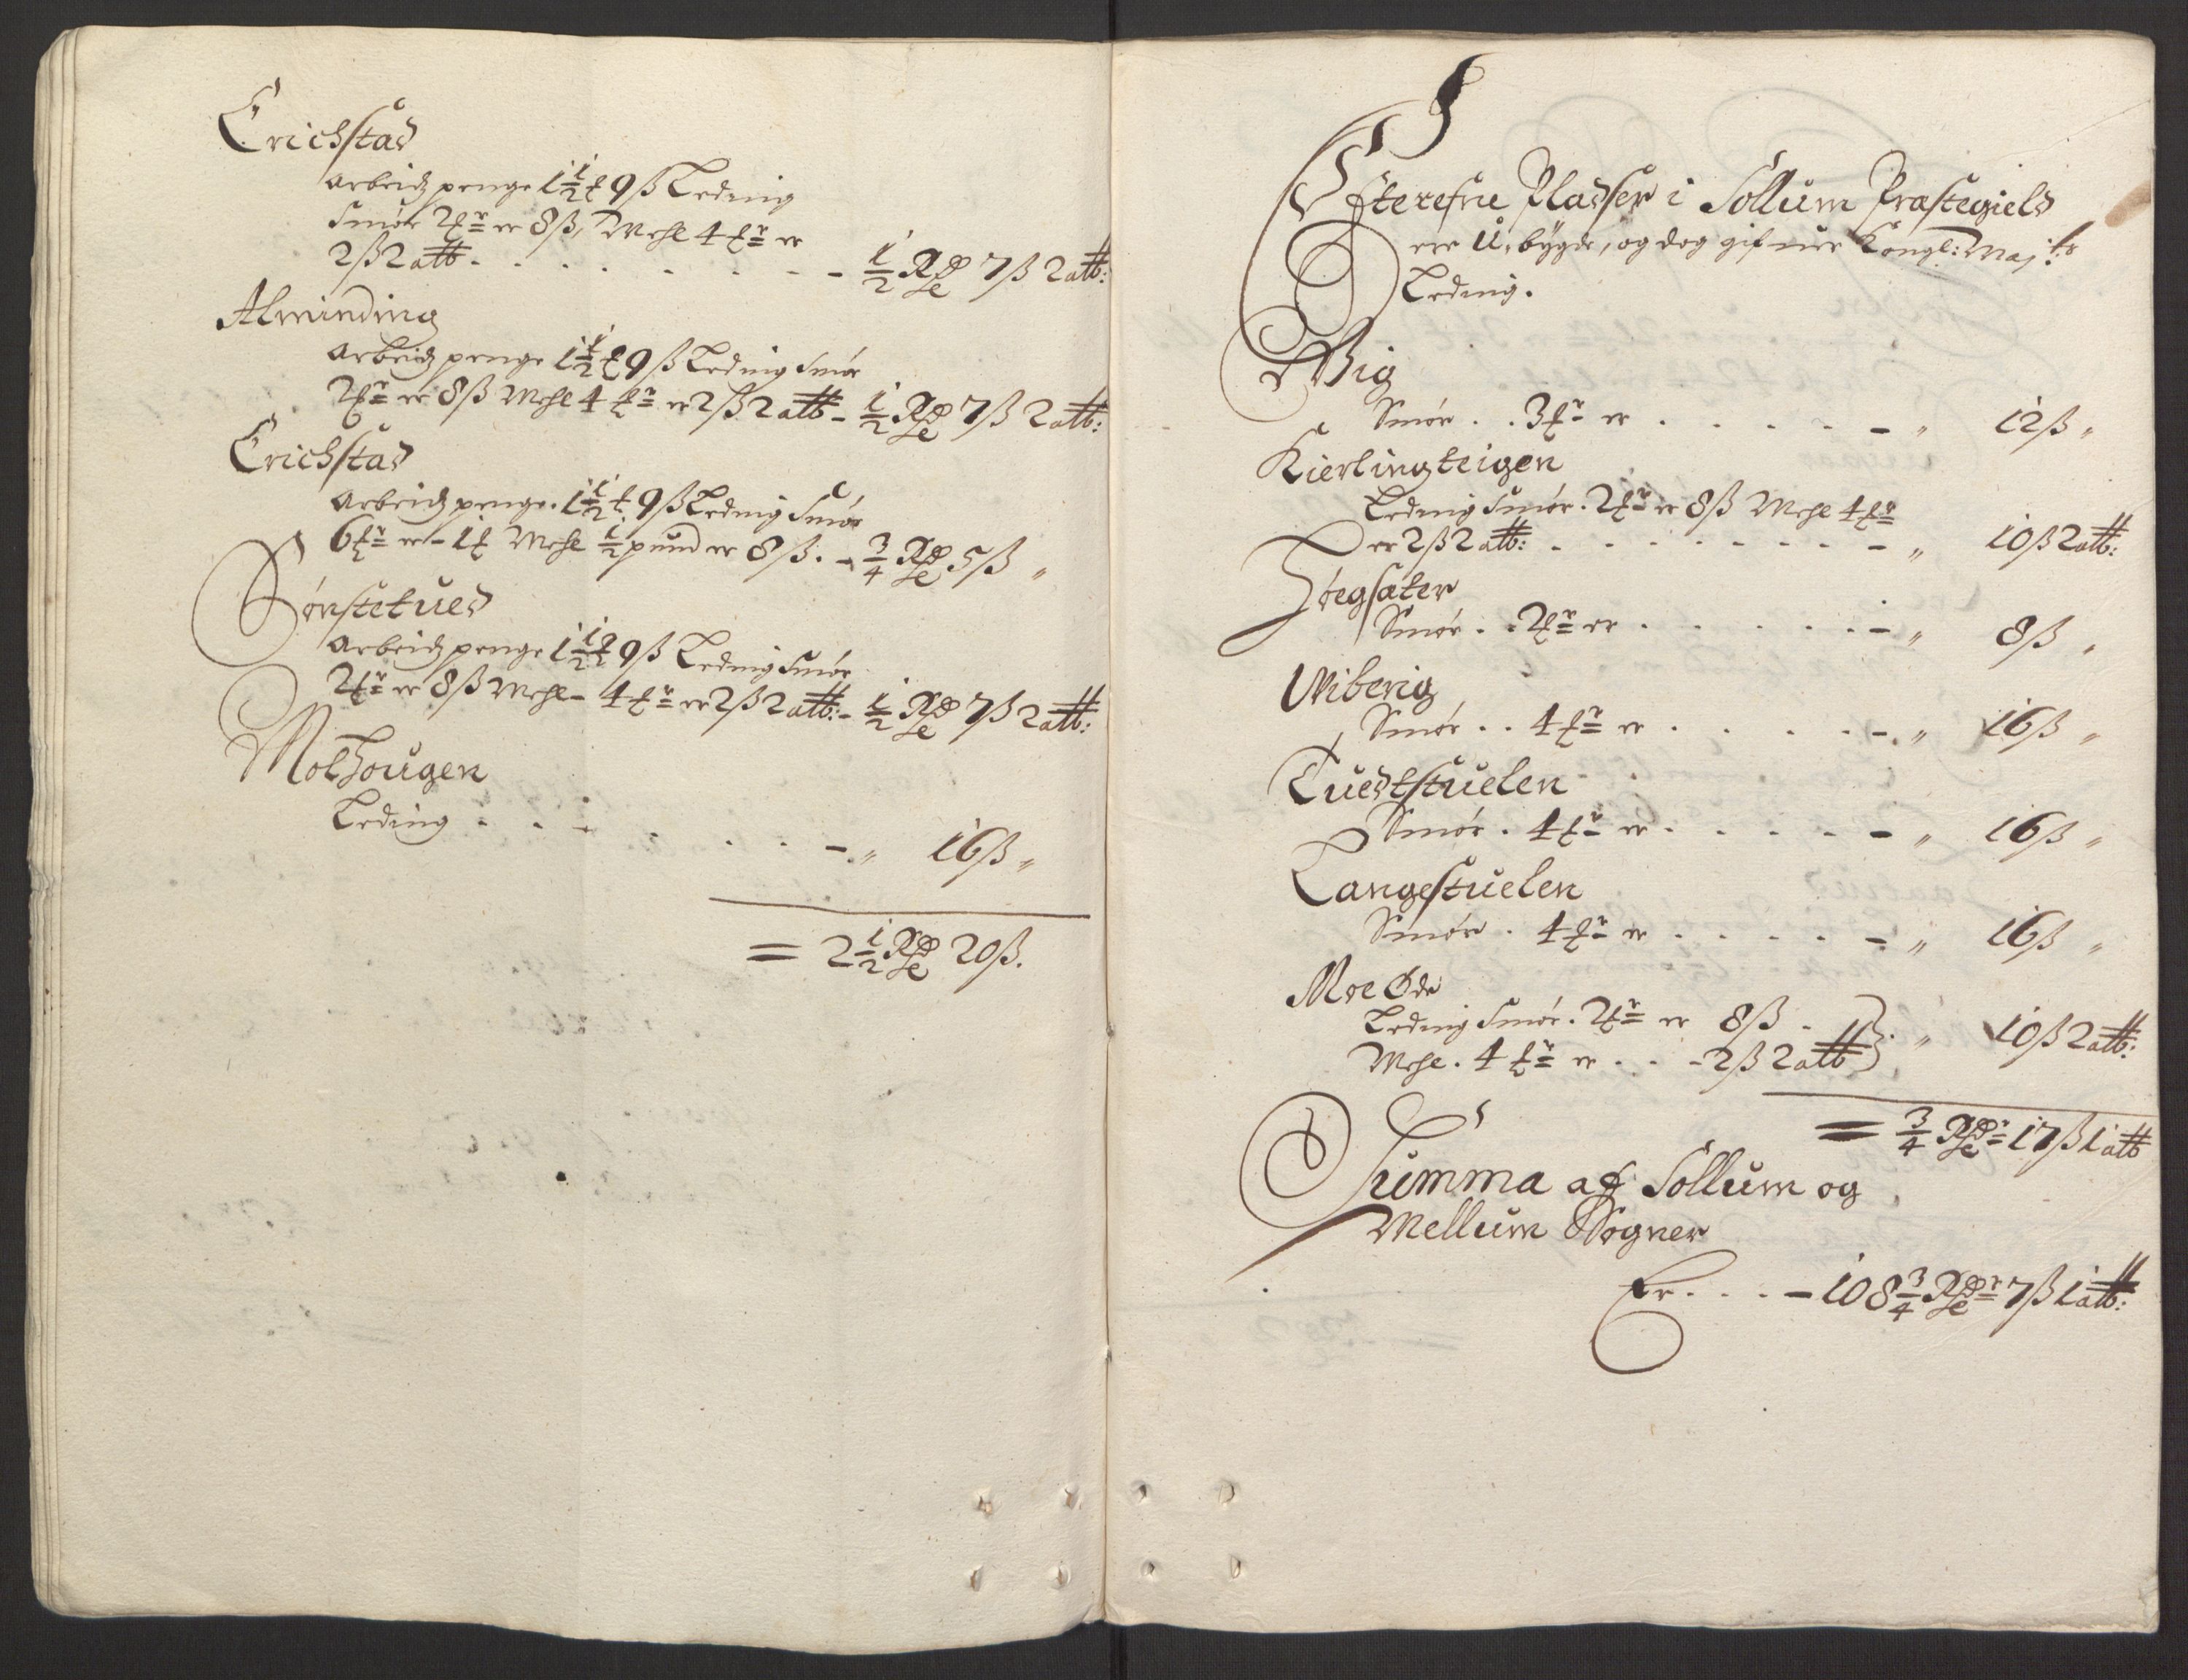 Erichstad
Arbeids penge 1½ ℔ 9ß Leding
Smør 2 ℔r er 8ß, Mehl 4 ℔r er
2ß 2 alb . . . . . . . . - ½ Rdr 7ß 2 alb:
Alminding
Arbeids penge 1½ ℔ 9ß Leding Smør
2 ℔r er 8ß Mehl 4 ℔r er 2ß 2 alb - ½ Rdr 7ß 2 alb:
Erichstad
Arbeids penge . 1½ ℔ 9ß Leding Smør
6 ℔r er - 1 ℔ Mehl ½ pund er 8ß . - ¾ Rdr 5ß "
Sønstetued
Arbeids penge 1½ ℔ 9ß Leding Smør
2 ℔r er 8ß Mehl - 4 ℔r er 2ß 2 alb: - ½ Rdr 7ß 2 alb:
Molhougen
Leding . . . . . . - " 16ß "
= 2½ Rdr 20ß.
Efterefne Pladser i Sollum Præstegield
ere U-bygde, og dog gifuer Kongl: Maj:ts
Leding.
Wig
Smør . . 3 ℔r er . . . . . - " 12ß "
Kierlingteigen
Leding Smør . 2 ℔r er 8ß Mehl 4 ℔r
er 2ß 2 alb: . . . . . . . . - " 10ß 2 alb:
Høegsæter
Smør . . 2 ℔r er . . . . . - " 8ß "
Wiberig
Smør . . 4 ℔r er . . . . - " 16ß "
Tuedtstuelen
Smør . 4 ℔r er . . . . . - " 16ß "
Langestuelen
Smør . 4 ℔r er . . . . . - " 16ß "
Moe Øde
Leding Smør . 2 ℔r er 8ß .
Mehl . 4 ℔r er . . - 2ß 2 alb } . " 10ß 2 alb:
= ¾ Rdr 17ß 1 alb
Summa af Sollum og
Mellum Sogner
Er . . . - 108¾ Rdr 7ß 1 alb: